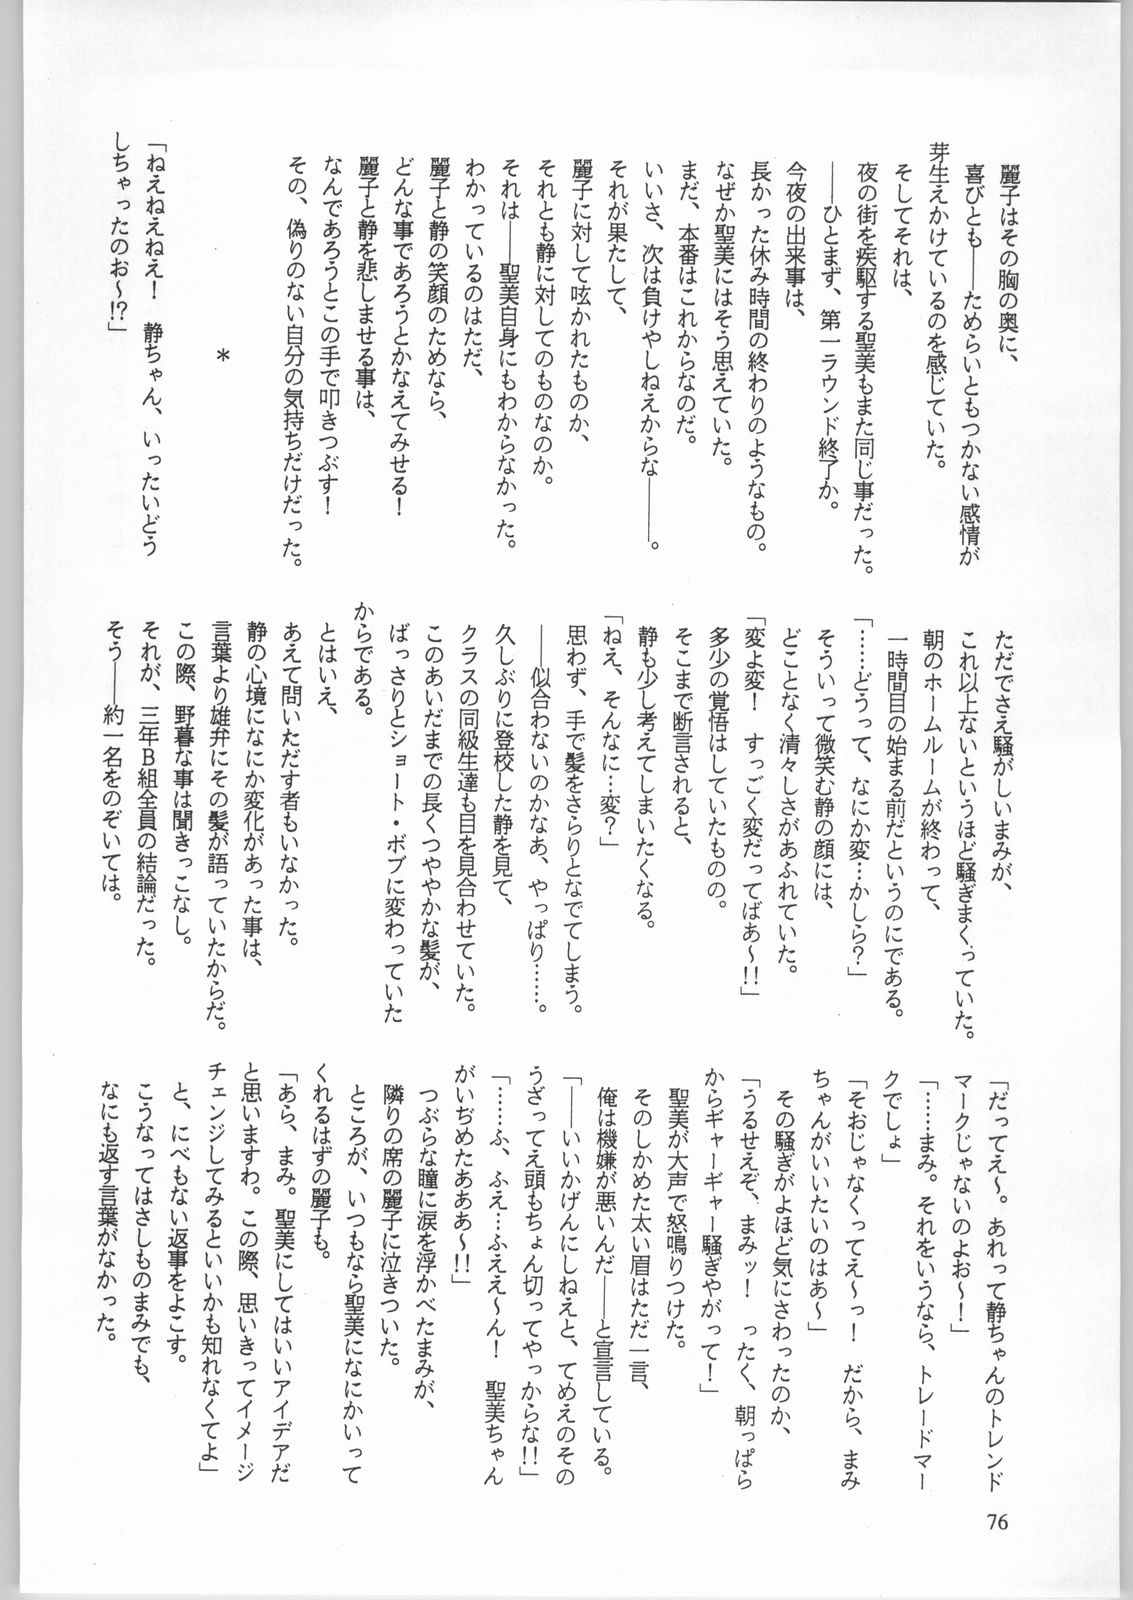 麗子はその胸の奥に、
喜びとも――ためらいともつかない感情が
芽生えかけているのを感じていた。
そしてそれは、
夜の街を疾駆する聖美もまた同じ事だった。
――ひとまず、第一ラウンド終了か。
今夜の出来事は、
長かった休み時間の終わりのようなもの。
なぜか聖美にはそう思えていた。
まだ、本番はこれからなのだ。
いいさ、次は負けやしねえからな――。
それが果たして、
麗子に対して呟かれたものか、
それとも静に対してのものなのか。
それは――聖美自身にもわからなかった。
わかっているのはただ、
麗子と静の笑顔のためなら、
どんな事であろうとかなえてみせる！
麗子と静を悲しませる事は、
なんであろうとこの手で叩きつぶす！
その、偽りのない自分の気持ちだけだった。
＊
「ねえねえねえ！　静ちゃん、いったいどう
しちゃったのお～!?」
ただでさえ騒がしいまみが、
これ以上ないというほど騒ぎまくっていた。
朝のホームルームが終わって、
一時間目の始まる前だというのにである。
「……どうって、なにか変…かしら？」
そういって微笑む静の顔には、
どことなく清々しさがあふれていた。
「変よ変！　すっごく変だってばあ～!!」
多少の覚悟はしていたものの。
そこまで断言されると、
静も少し考えてしまいたくなる。
「ねえ、そんなに…変？」
思わず、手で髪をさらりとなでてしまう。
――似合わないのかなあ、やっぱり……。
久しぶりに登校した静を見て、
クラスの同級生達も目を見合わせていた。
このあいだまでの長くつややかな髪が、
ばっさりとショート・ボブに変わっていた
からである。
とはいえ、
あえて問いただす者もいなかった。
静の心境になにか変化があった事は、
言葉より雄弁にその髪が語っていたからだ。
この際、野暮な事は聞きっこなし。
それが、三年Ｂ組全員の結論だった。
そう――約一名をのぞいては。
「だってえ～。あれって静ちゃんのトレンド
マークじゃないのよお～！」
「……まみ。それをいうなら、トレードマー
クでしょ」
「そおじゃなくってえ～っ！　だから、まみ
ちゃんがいいたいのはあ～」
その騒ぎがよほど気にさわったのか、
「うるせえぞ、まみッ！　ったく、朝っぱら
からギャーギャー騒ぎやがって！」
聖美が大声で怒鳴りつけた。
そのしかめた太い眉はただ一言、
俺は機嫌が悪いんだ――と宣言している。
「――いいかげんにしねえと、てめえのその
うざってえ頭もちょん切ってやっからな!!」
「……ふ、ふえ…ふええ～ん！　聖美ちゃん
がいぢめたあああ～!!」
つぶらな瞳に涙を浮かべたまみが、
隣りの席の麗子に泣きついた。
ところが、いつもなら聖美になにかいって
くれるはずの麗子も。
「あら、まみ。聖美にしてはいいアイデアだ
と思いますわ。この際、思いきってイメージ
チェンジしてみるといいかも知れなくてよ」
と、にべもない返事をよこす。
こうなってはさしものまみでも、
なにも返す言葉がなかった。
76